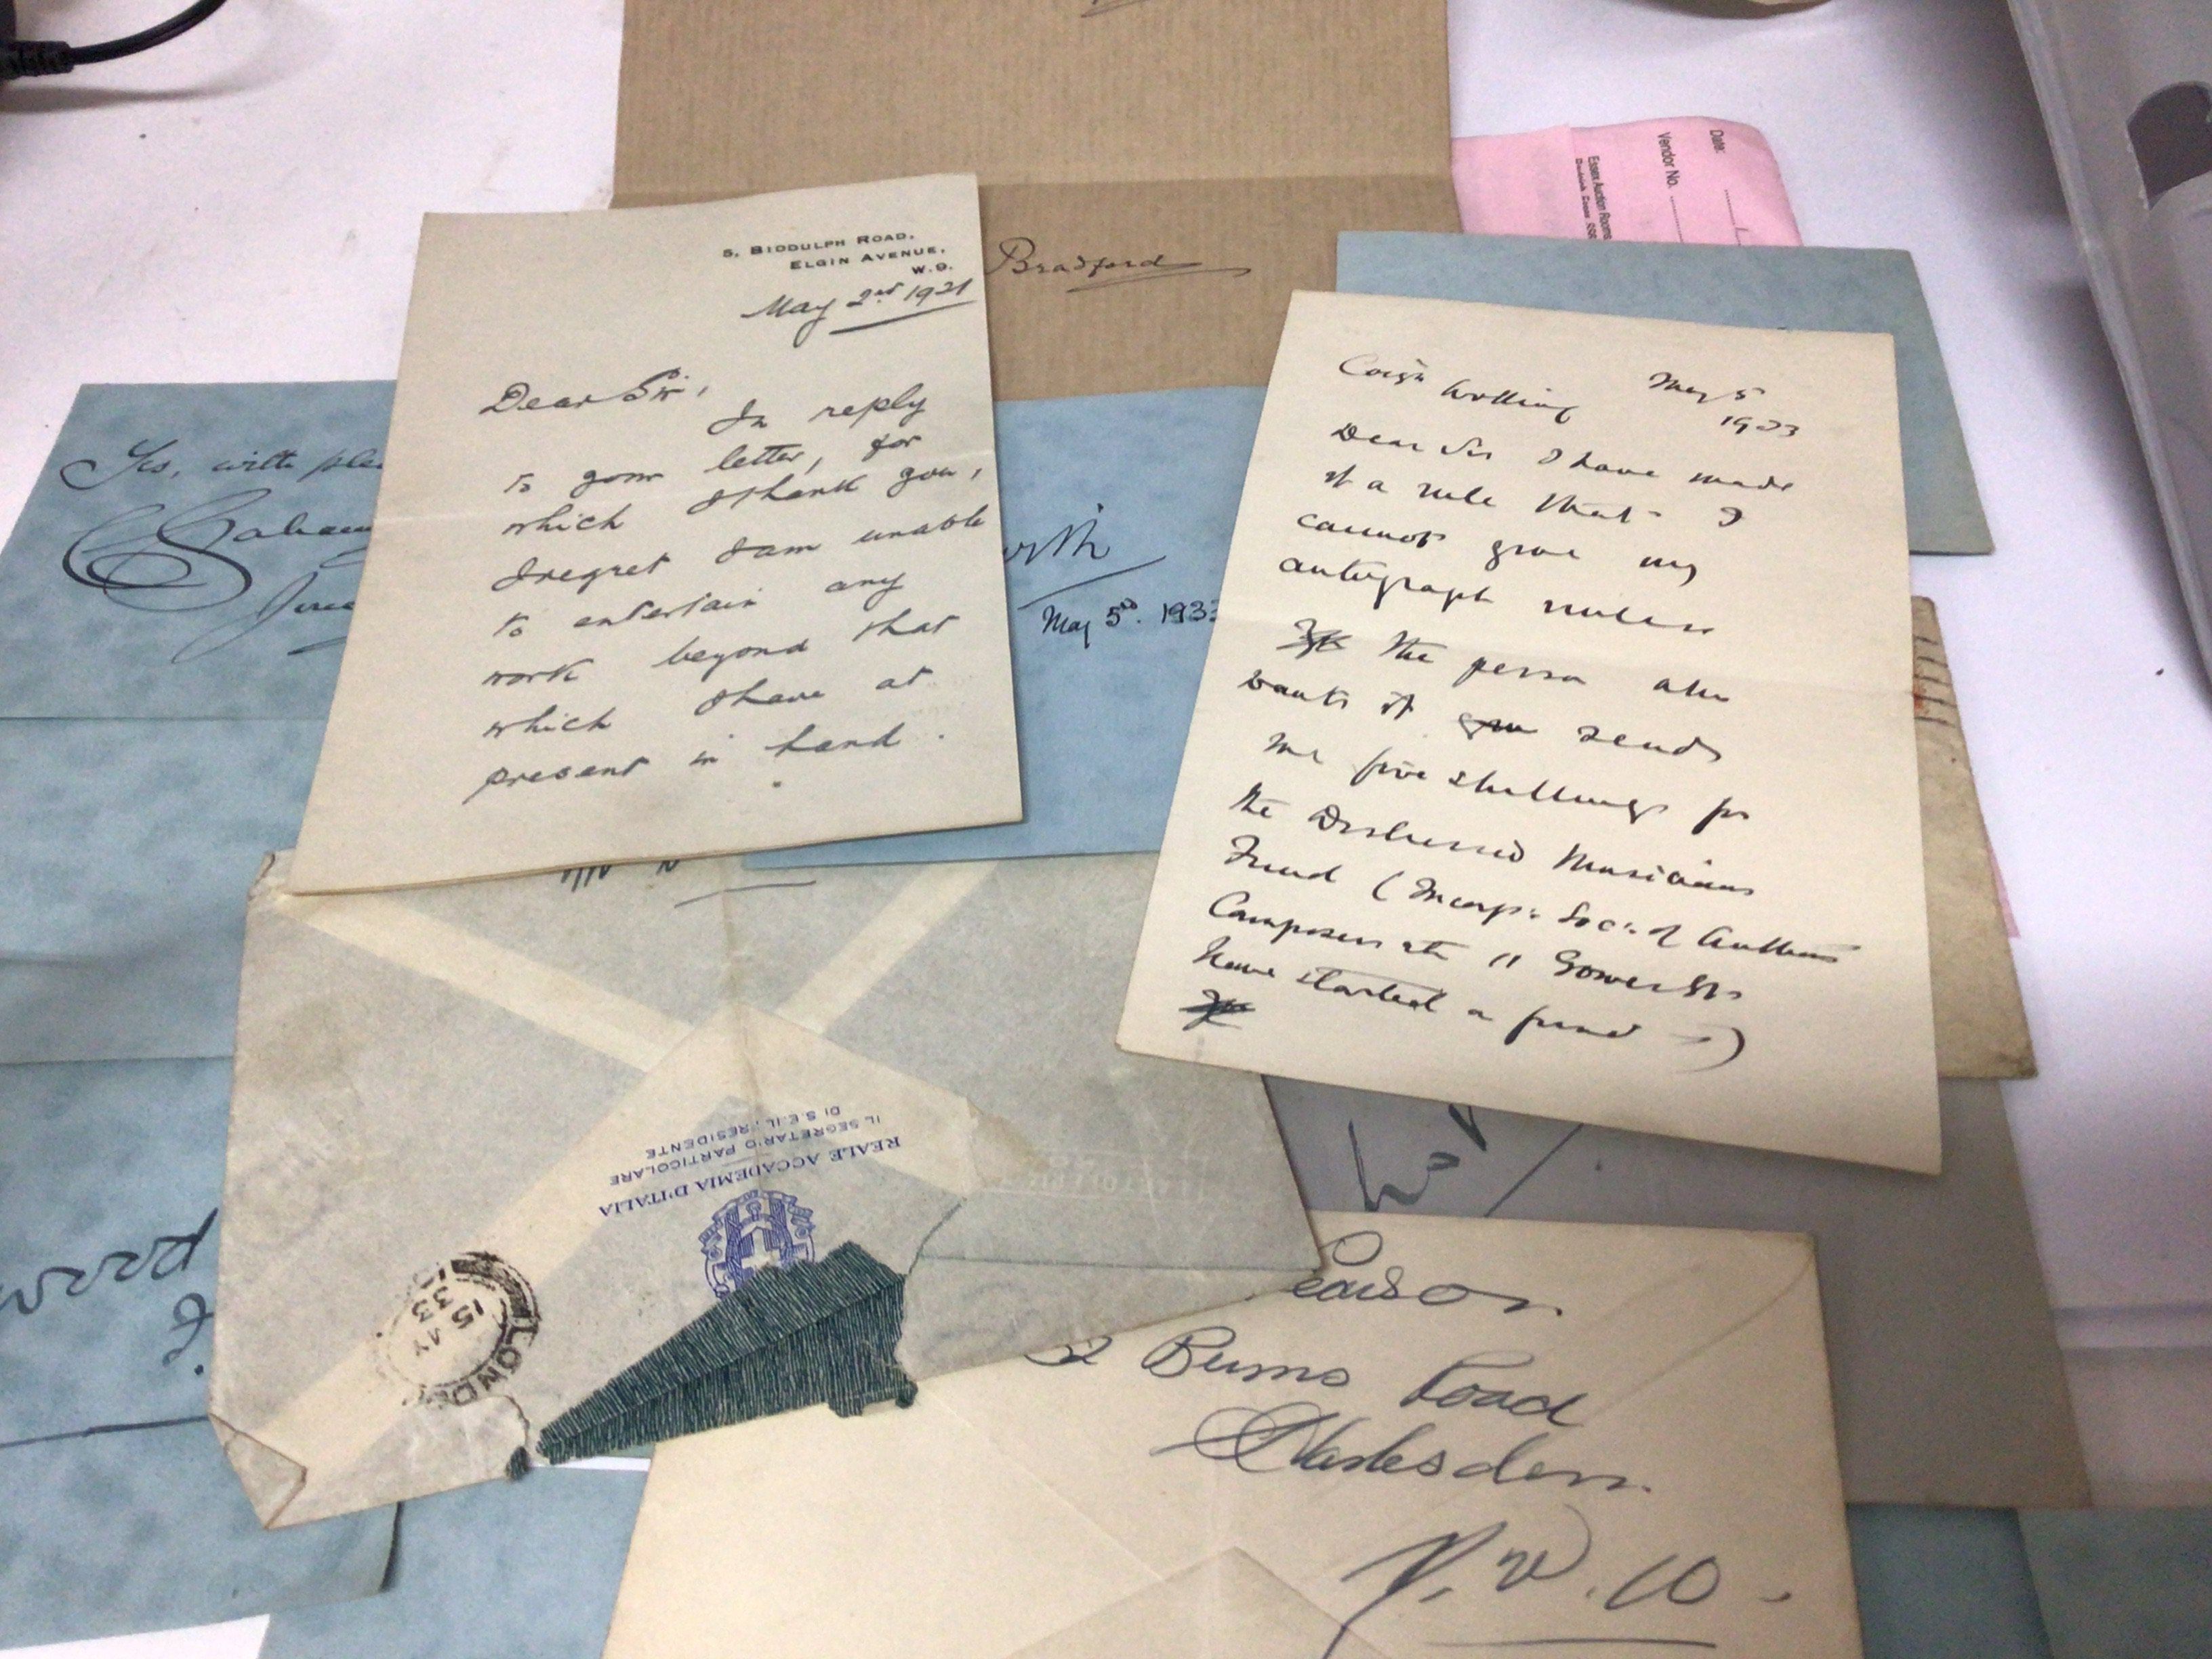 5, BIDDULPH ROAD,
ELGIN AVENUE,
W.9.
May 2nd 1921
Dear Sir,
In reply
to your letter, for
which I thank you,
I regret I am unable
to entertain any
work beyond that
which I have at
present in hand.
Bradford
Date:
Vendor No.
Essex Auction Rooms
Yes, with
May 5th. 1933
May 5
1933
Dear Sir I have made
it a rule that I
cannot give my
autograph unless
the person who
wants it sends
me five shillings for
the Distressed Musicians
Fund (Incorp: Soc: of Authors
Composers etc 11 Gower St
have started a fund -)
REALE ACCADEMIA D'ITALIA
IL SEGRETARIO PARTICOLARE
DI S.E. IL PRESIDENTE
LOND
15 MY
33
wood
earson.
32 Burns Road
Harlesden.
N.W.10.